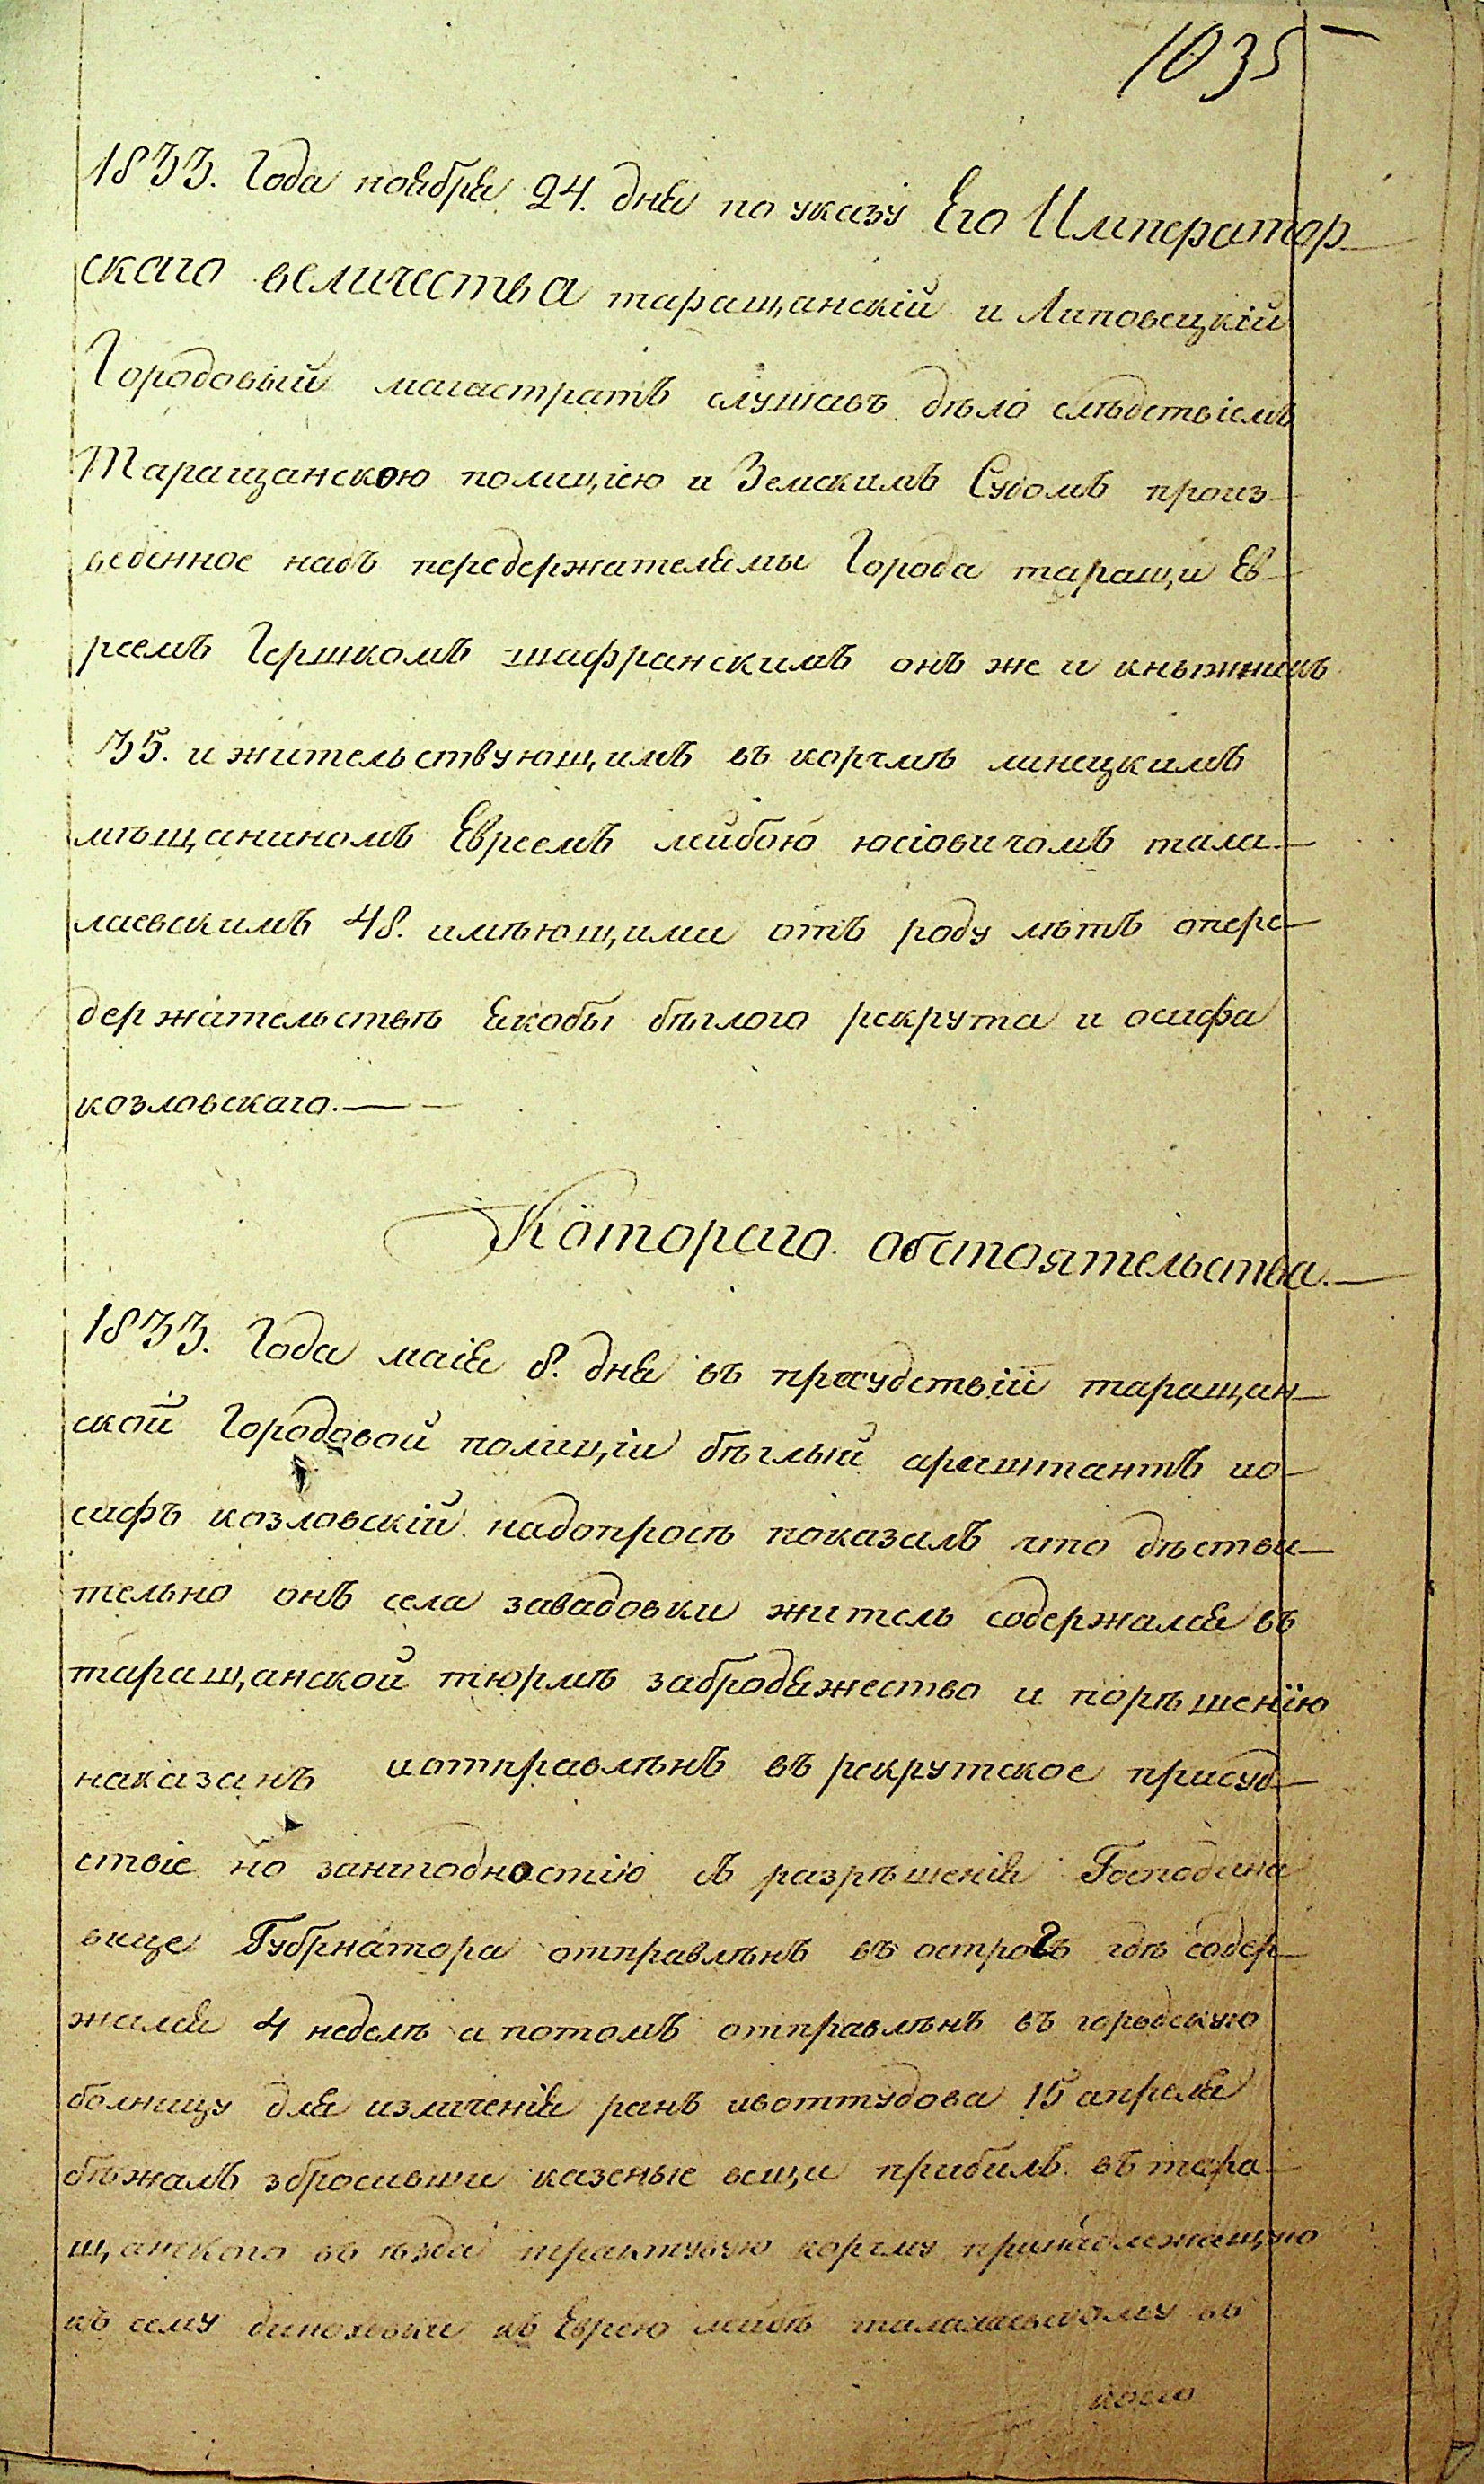 1035
1833. Года ноября 24. дня по указу Его Император-
скаго величества таращанскій и Липовецкій
Городовый магастратъ слушавъ дѣло слѣдствіемъ
Таращанскою полиціею и Земскимъ Судомъ произ-
веденное надъ передержателямы Города таращи Ев-
реемъ Гершкомъ шафранскимъ онъ же и
35. и жительствующимъ въ корчмѣ линецкимъ
мѣщаниномъ Евреемъ лейбою юсіовичомъ тала-
лаевскимъ 48. имѣющими отъ роду лѣтъ опере-
держательствѣ якобы бѣглого рекрута и осифа
козловскаго.—
Котораго обстоятельства.—
1833. Года маія 8. дня въ присудствій таращан-
ской Городовой полиціи бѣглый арештантъ ио-
сифъ козловскій надопросѣ показалъ что дѣстви-
тельно онъ села завадовки житель содержался въ
таращанской тюрмѣ забродяжество и порѣшенію
наказанъ иотправлѣнъ въ рекрутское присуд-
ствіе но занигодностію съ разрѣшенія Господина
вице Губрнатора отправлѣнъ въ острогъ гдѣ содер-
жался 4 неделѣ а потомъ отправлѣнъ въ городскую
болницу для изличенія ранъ ивоттудова 15 апреля
бѣжалъ збросивши казеные вещи прибилъ въ тара-
щанского въ ѣзда трактувую корчму принадлежащую
къ селу къ Еврею лейбѣ талалаевскому въ
коего